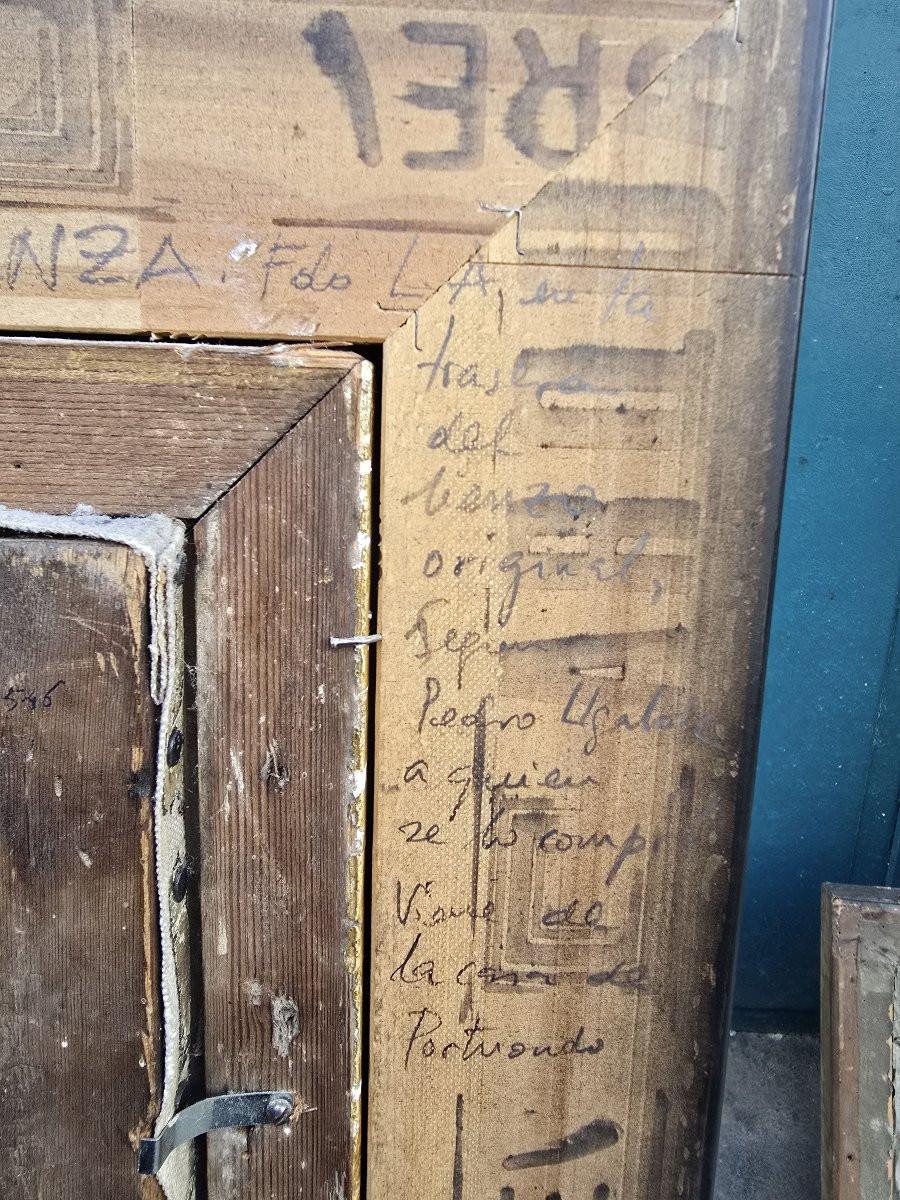 NZA. Fdo L.A, en la
trasera
del
lienzo
original,
Segun
Pedro Ugalde
a quien
se lo compr
Viene de
la casa de
Portuondo
546